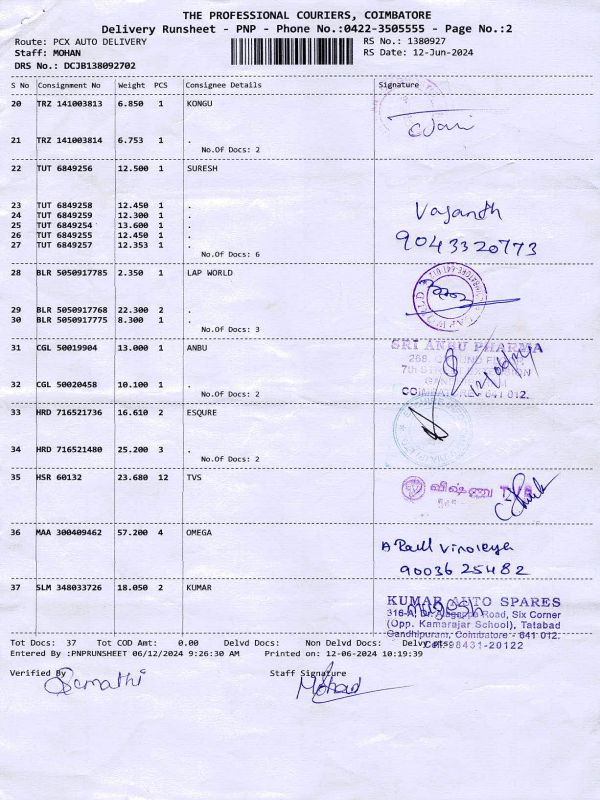 THE PROFESSIONAL COURIERS, COIMBATORE
Delivery Runsheet - PNP - Phone No.:0422-3505555 - Page No.:2
Route: PCX AUTO DELIVERY RS No.: 1380927
Staff: MOHAN RS Date: 12-Jun-2024
DRS No.: DCJB138092702
S No Consignment No Weight PCS Consignee Details Signature
20 TRZ 141003813 6.850 1 KONGU
21 TRZ 141003814 6.753 1 .
No.Of Docs: 2
22 TUT 6849256 12.500 1 SURESH
23 TUT 6849258 12.450 1 . Vasanth
24 TUT 6849259 12.300 1 .
25 TUT 6849254 13.600 1 .
26 TUT 6849255 12.450 1 . 9043320773
27 TUT 6849257 12.353 1 .
No.Of Docs: 6
28 BLR 5050917785 2.350 1 LAP WORLD
29 BLR 5050917768 22.300 2 .
30 BLR 5050917775 8.300 1 .
No.Of Docs: 3
31 CGL 50019904 13.000 1 ANBU SRI ANBU PHARMA
32 CGL 50020458 10.100 1 . COIMBATORE - 641 012.
No.Of Docs: 2
33 HRD 716521736 16.610 2 ESQURE
34 HRD 716521480 25.200 3 .
No.Of Docs: 2
35 HSR 60132 23.680 12 TVS விஷ்ணு TVS
36 MAA 300409462 57.200 4 OMEGA
9003625482
37 SLM 348033726 18.050 2 KUMAR KUMAR AUTO SPARES
Road, Six Corner
(Opp. Kamarajar School), Tatabad
Gandhipuram, Coimbatore - 641 012.
Tot Docs: 37 Tot COD Amt: 0.00 Delvd Docs: Non Delvd Docs: Cell:98431-20122
Entered By :PNPRUNSHEET 06/12/2024 9:26:30 AM Printed on: 12-06-2024 10:19:39
Verified By Staff Signature
Mohan